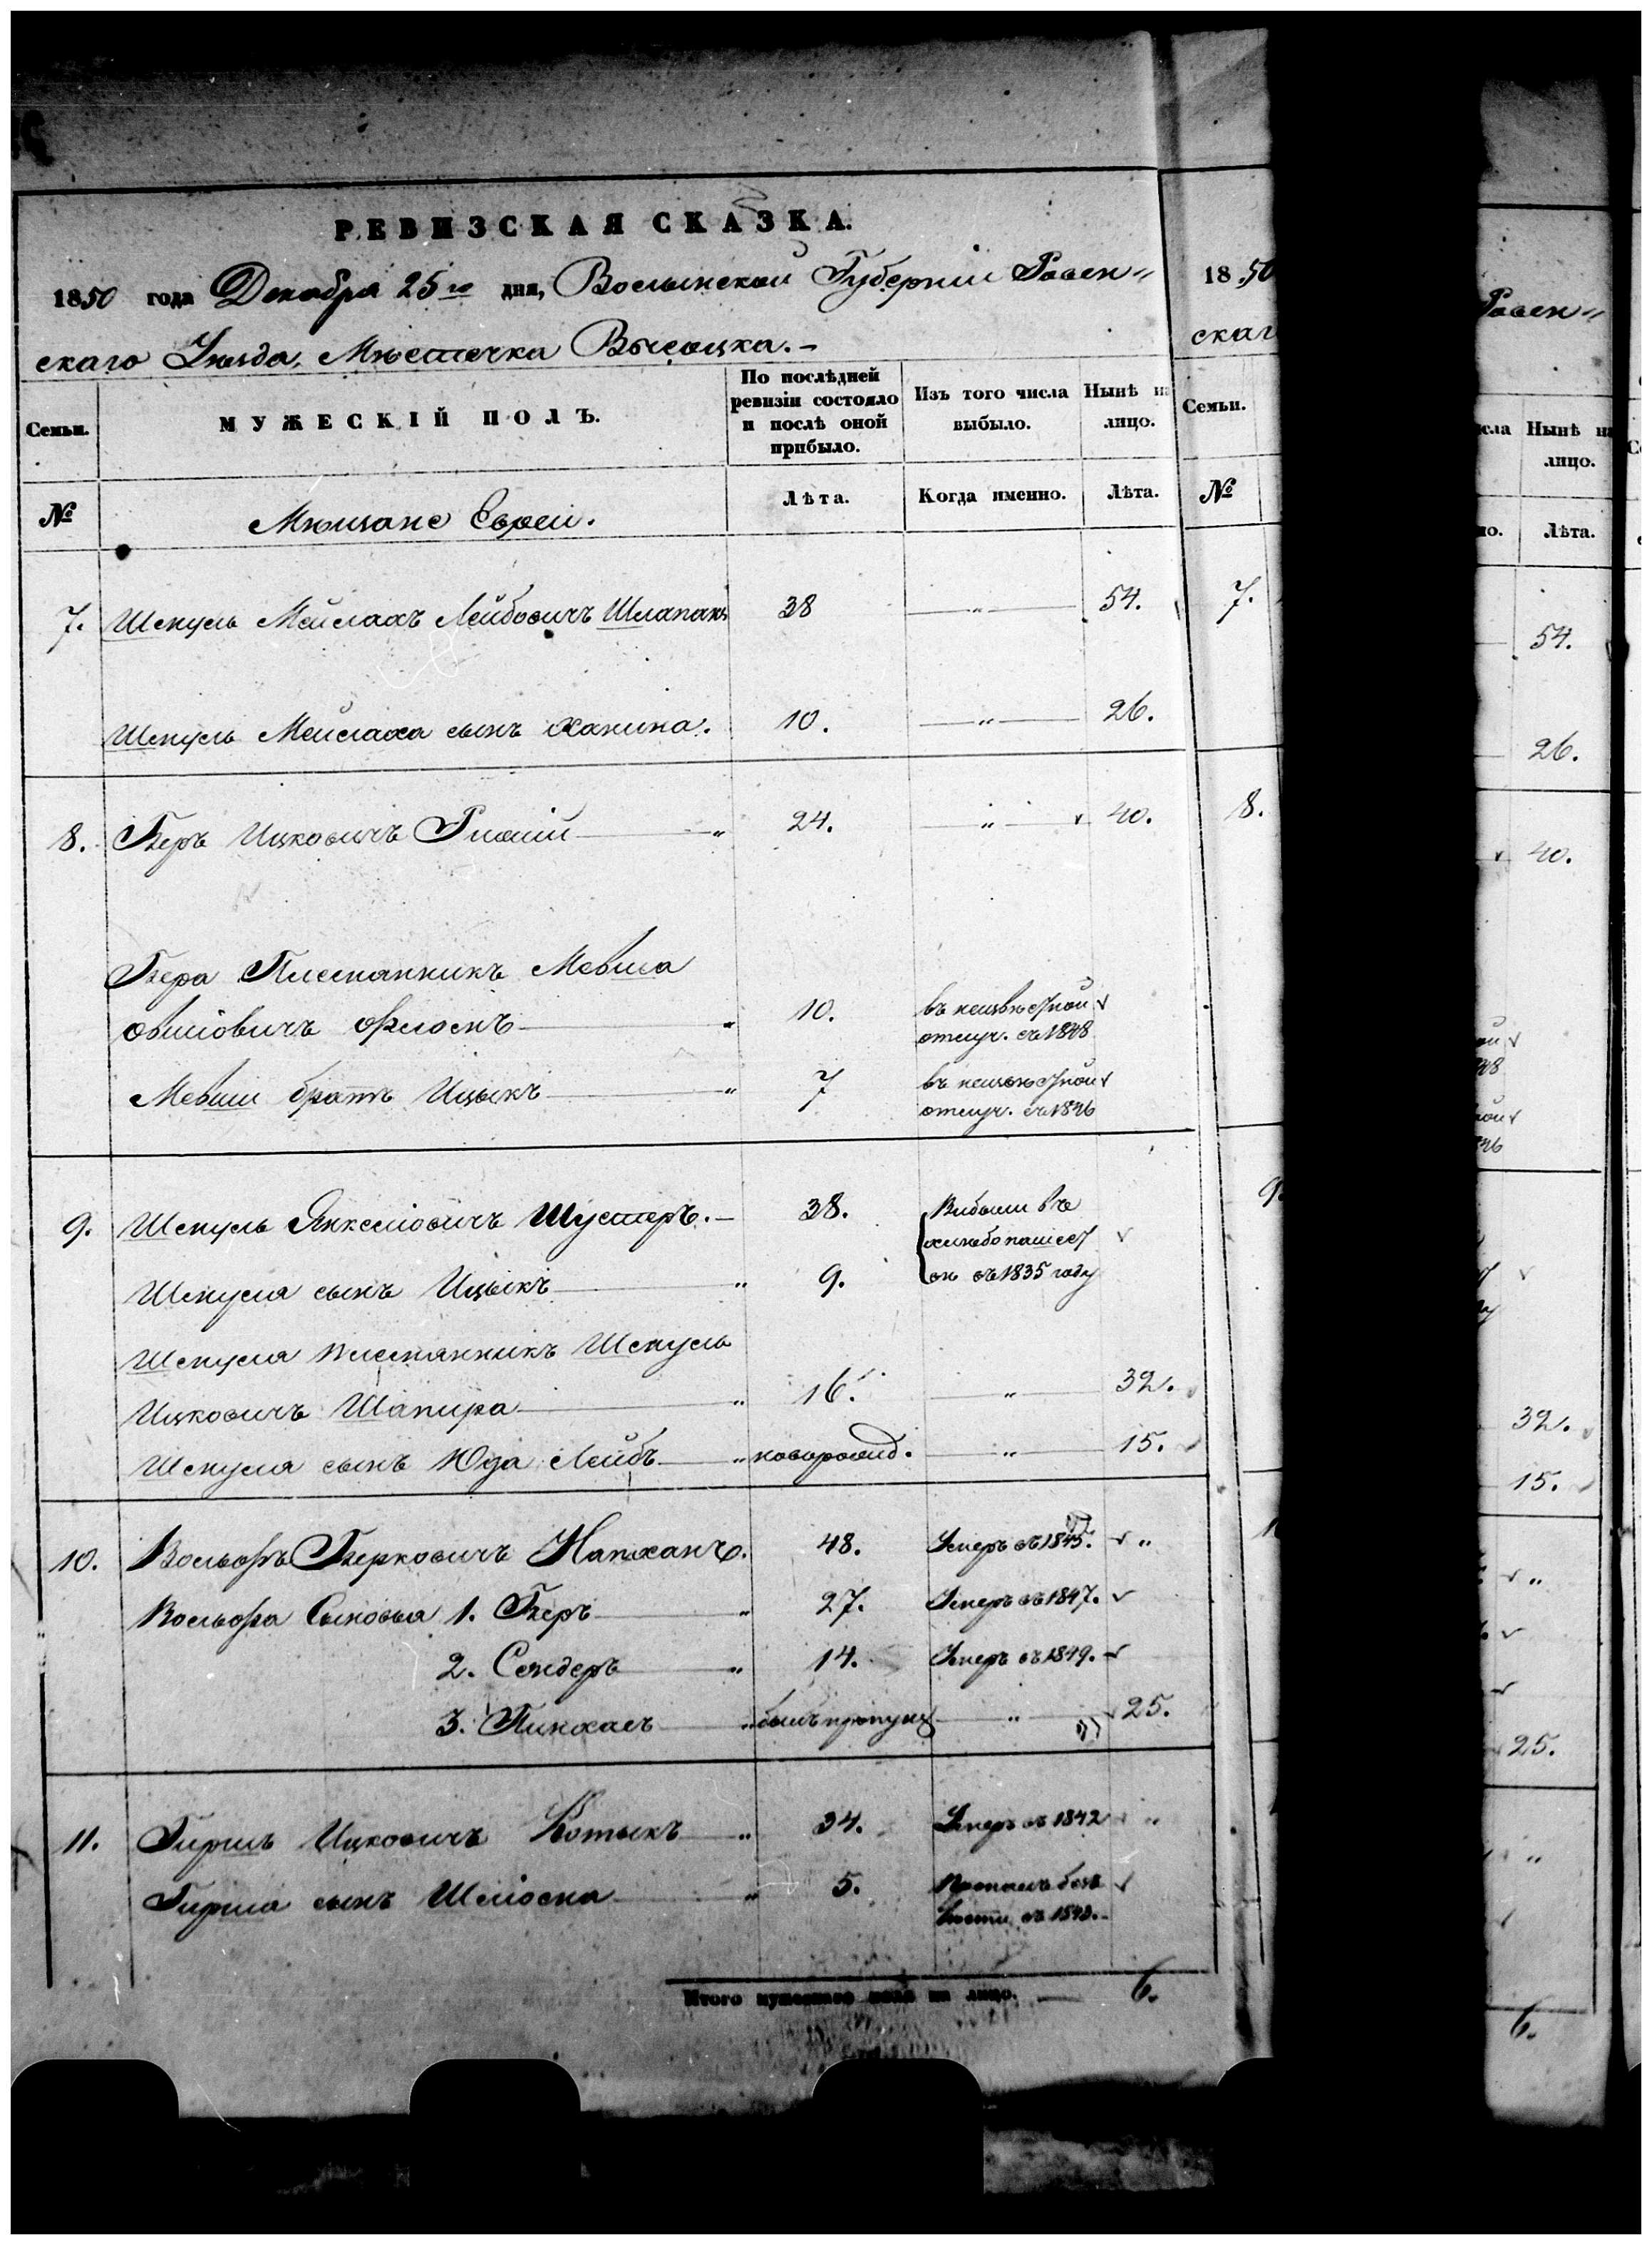 РЕВИЗСКАЯ СКАЗКА.
1850 года Декабря 25го дня, Волынской Губерніи Ровен„
скаго Уѣзда, Мѣстечка Высоцка.
Семьи.
МУЖЕСКІЙ ПОЛЪ.
По послѣдней ревизіи состояло и послѣ оной прибыло.
Изъ того числа выбыло.
Нынѣ на лицо.
№ Мѣщане Евреи. Лѣта. Когда именно. Лѣта.
7. Шмуль Мейлахъ Лейбовичъ Шлапакъ 38 — „ — 54.
Шмуль Мейлаха сынъ Ханина. 10. — „ — 26.
8. Беръ Ицковичъ — „ 24. — „ — 40.
Бера Племянникъ Мевша
10. въ неизвѣстной
отлуч. съ 1848
Мевши братъ Ицыкъ — „ 7 въ неизвѣстной
отлуч. съ 1846
9. Шмуль Янкеліовичъ Шустеръ. — 38. Выбыли въ
хлѣбопашест
Шмуля сынъ Ицыкъ — „ 9. въ 1835 году
Шмуля племянникъ Шмуль
Ицковичъ Шапира — „ 16. — „ — 32.
Шмуля сынъ Юда Лейбъ — „ новорожд. — „ — 15.
10. Вольфъ Берковичъ 48. Умеръ въ 1845. „
Вольфа Сыновья 1. Беръ — „ 27. Умеръ въ 1847.
2. Сендеръ — „ 14. Умеръ въ 1849.
3. Пинхасъ — „ былъ пропущ — „ — 25.
11. Гиршъ Ицковичъ Котыкъ — „ 34. Умеръ въ 1842 „
Гирша сынъ Шліома — „ 5. безъ
вѣсти въ
Итого мужескаго пола на лицо. — 6.
1850
скаг
Семьи.
№
7.
8.
9
Ровен„
сла Нынѣ на
лицо.
но. Лѣта.
54.
26.
40.
32.
15.
25.
6.